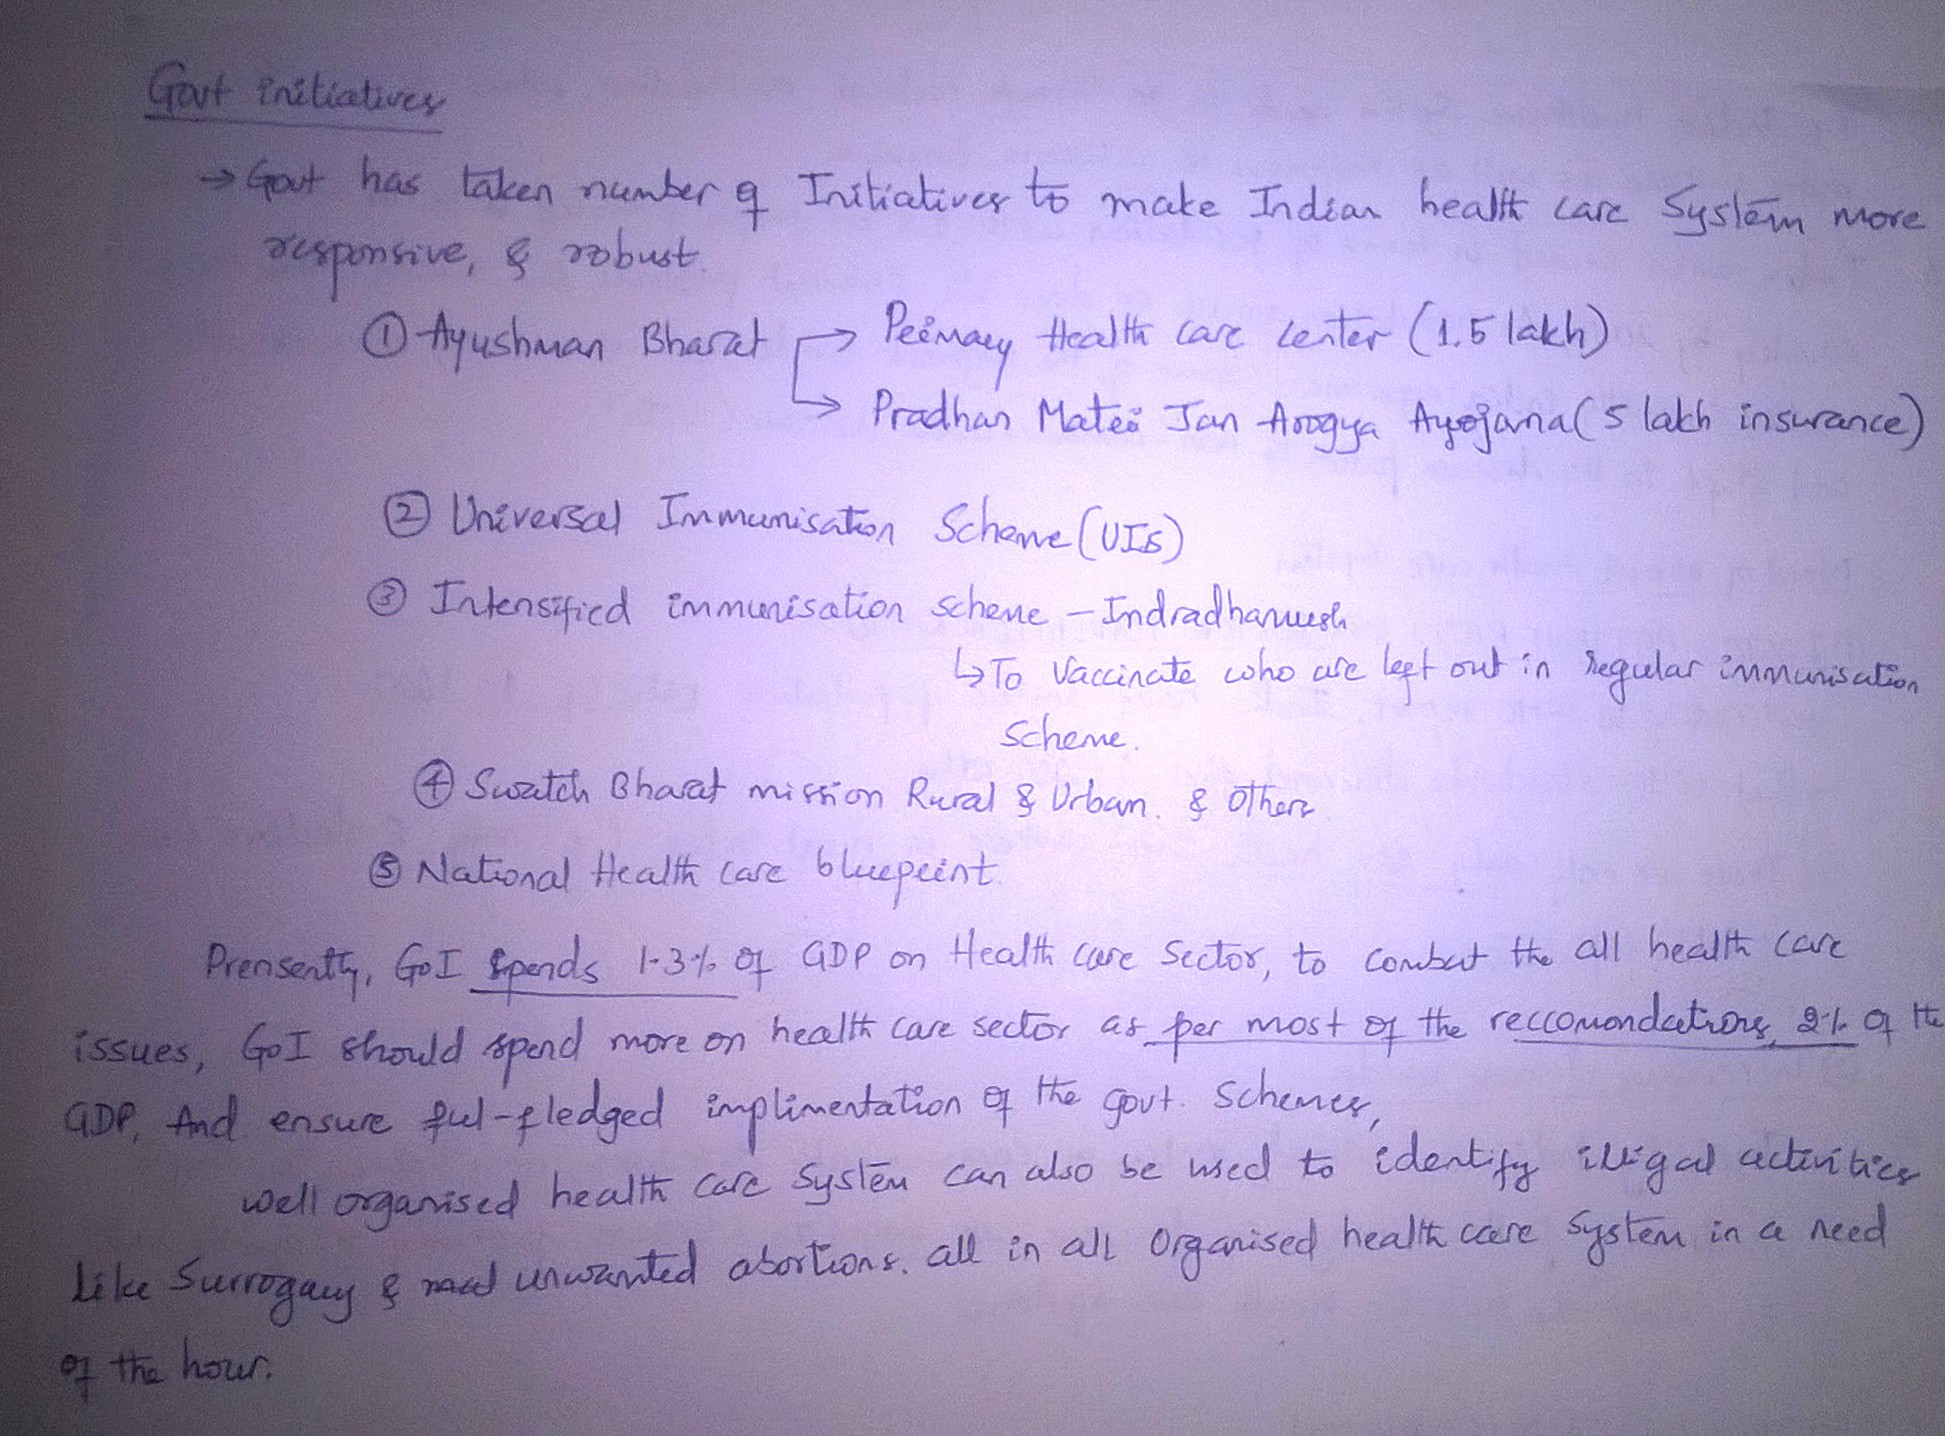 Govt initiatives
→ Govt has taken number of Initiatives to make Indian health care System more
responsive, & robust.
① Ayushman Bharat → Primary Health care center (1.5 lakh)
↳ Pradhan Matri Jan Arogya Ayojana (5 lakh insurance)
② Universal Immunisation Scheme (UIS)
③ Intensified immunisation scheme - Indradhanush
↳ To Vaccinate who are left out in regular immunisation
Scheme.
④ Swatch Bharat mission Rural & Urban. & Others
⑤ National Health care blueprint.
Prensently, GoI spends 1.3% of GDP on Health care Sector, to combat the all health care
issues, GoI should spend more on health care sector as per most of the reccomondations, 2% of the
GDP. And ensure ful-fledged implimentation of the govt. Schemes,
well organised health care System can also be used to identify illigal activities
like Surrogacy & unwanted abortions. all in all Organised health care System in a need
of the hour.